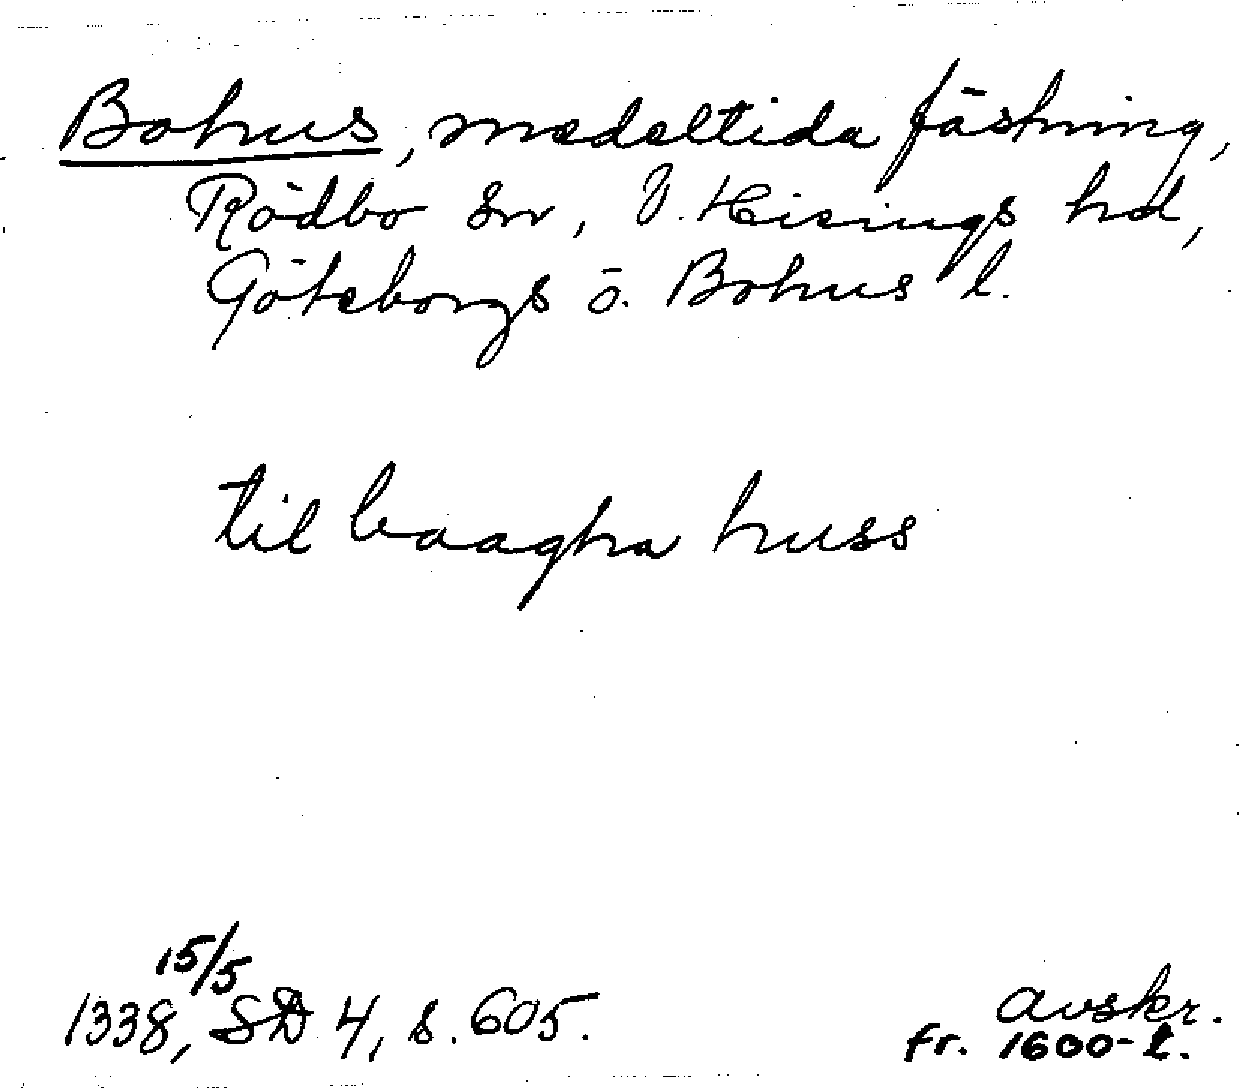 Bohus, medeltida fästning,
Rödbo sn, V. Hisings hd,
Göteborgs o. Bohus l.
til baagha huss
15/5
1338, SD 4, s. 605.
avskr.
fr. 1600-t.